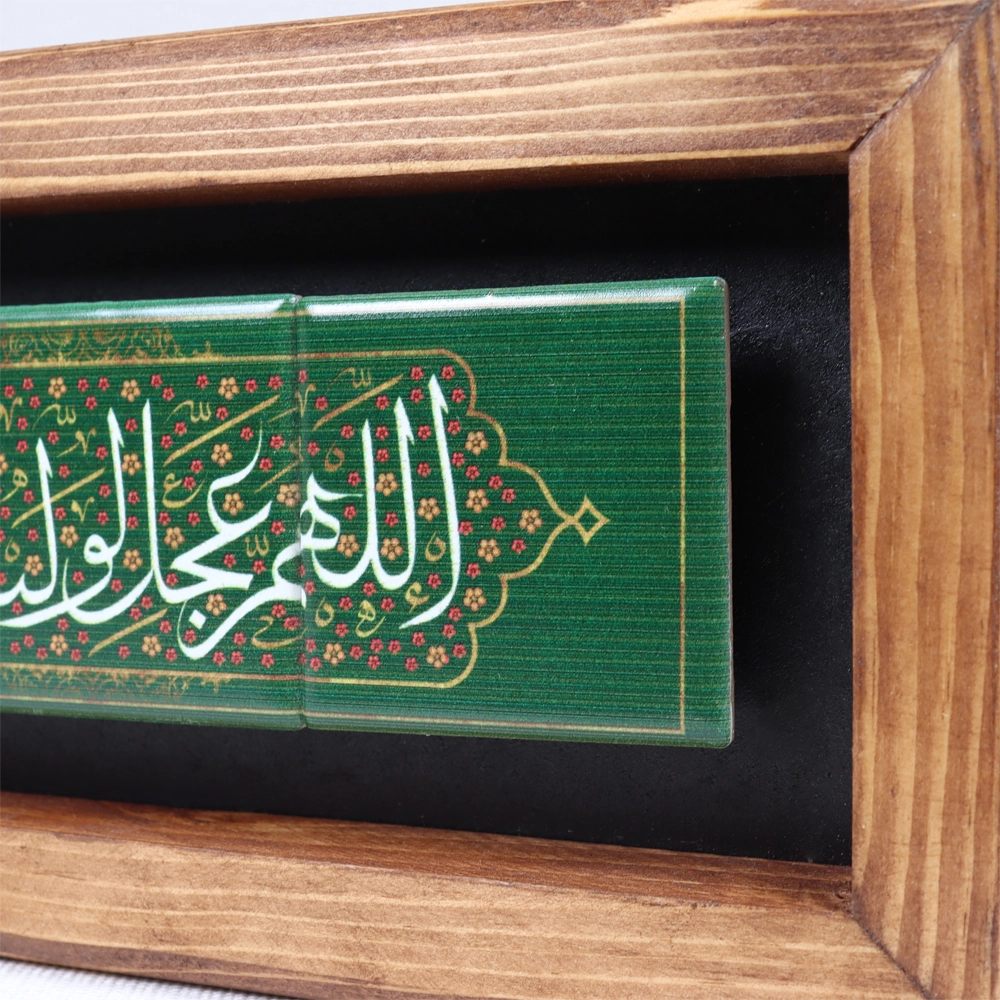 اللهم عجل لولیـ